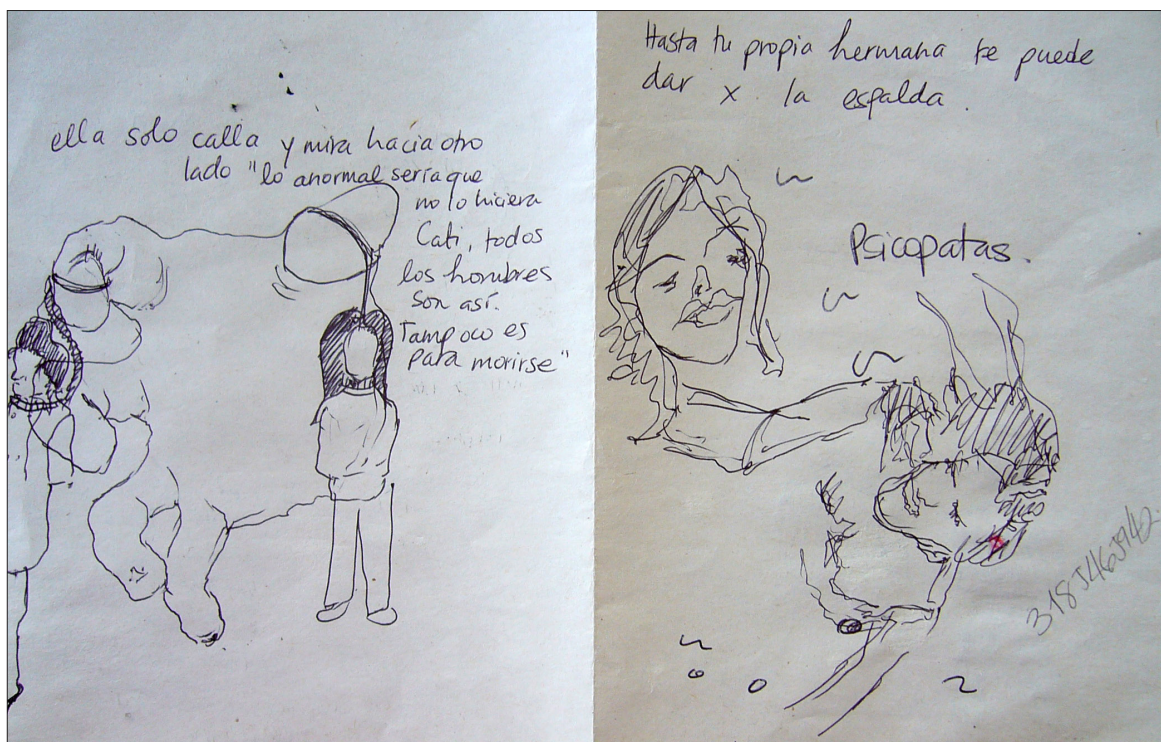 ella solo calla y mira hacia otro
lado "lo anormal sería que
no lo hiciera
Cati, todos
los hombres
son así.
Tampoco es
para morirse"
Hasta tu propia hermana te puede
dar x la espalda.
Psicopatas.